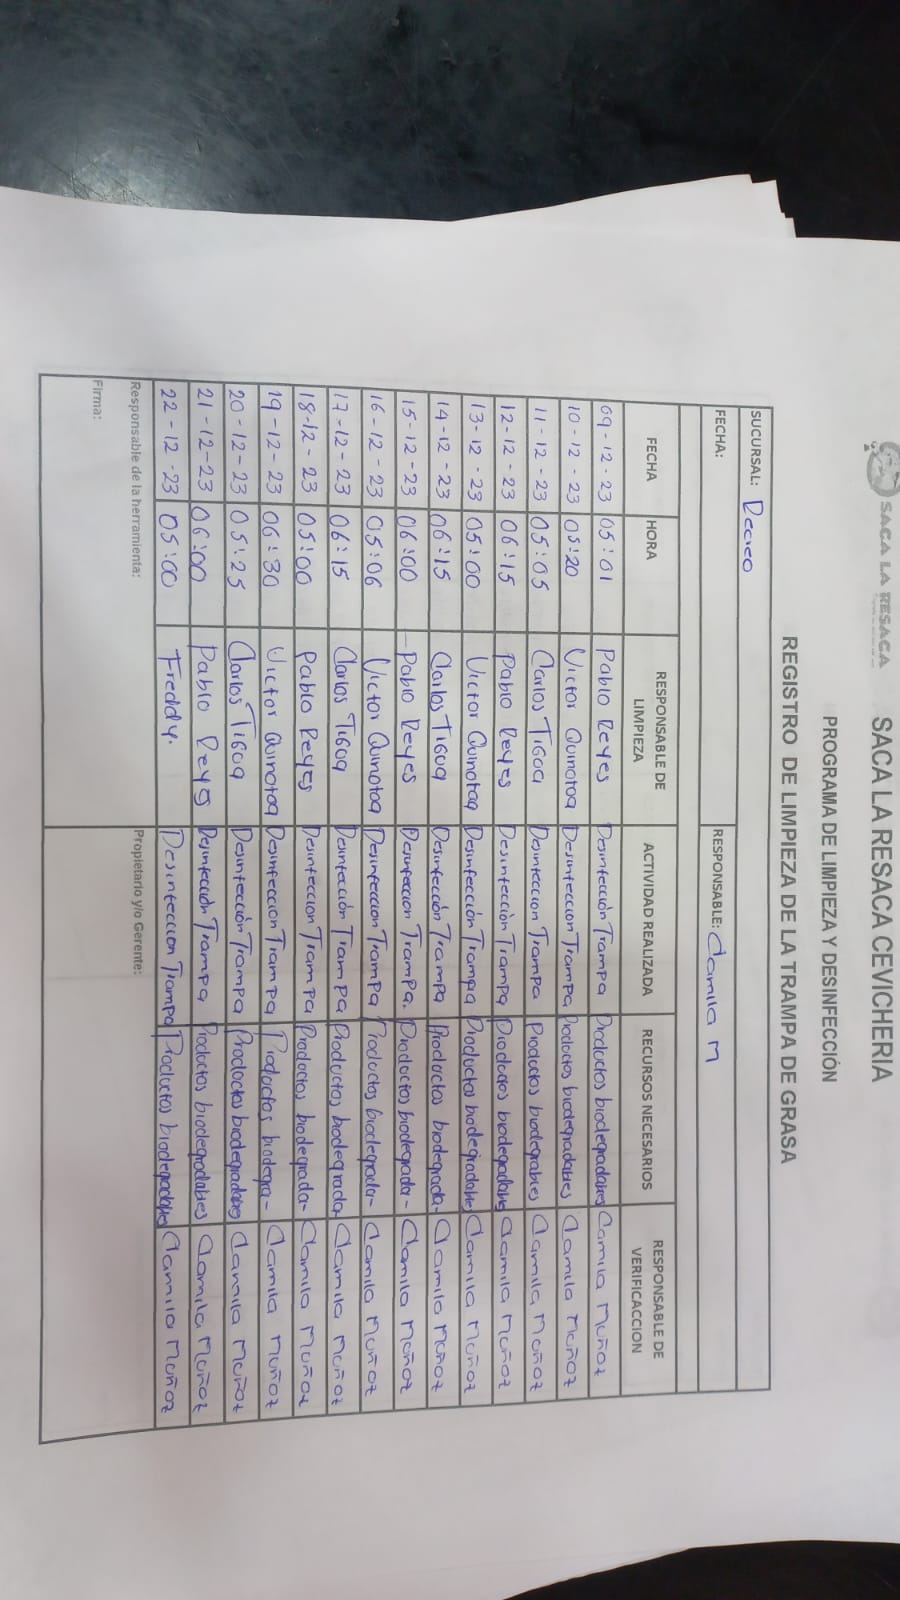 SACA LA RESAGA SACA LA RESACA CEVICHERIA
PROGRAMA DE LIMPIEZA Y DESINFECCIÓN
REGISTRO DE LIMPIEZA DE LA TRAMPA DE GRASA
SUCURSAL: Recreo
FECHA: RESPONSABLE: Camila M
FECHA HORA RESPONSABLE DE LIMPIEZA ACTIVIDAD REALIZADA RECURSOS NECESARIOS RESPONSABLE DE VERIFICACCION
09-12-23 05:01 Pablo Reyes Desinfección Trampa Productos biodegradables Camila Muñoz
10-12-23 05:20 Victor Quinotoa Desinfeccion Trampa Productos biodegradables Camila Muñoz
11-12-23 05:05 Carlos Tigoa Desinfeccion Trampa Productos biodegrables Camila Muñoz
12-12-23 06:15 Pablo Reyes Desinfección Trampa Productos biodegradables Camila Muñoz
13-12-23 05:00 Victor Quinotoa Desinfección Trampa Productos biodegradables Camila Muñoz
14-12-23 06:15 Carlos Tigoa Desinfección Trampa Productos biodegrada- Camila Muñoz
15-12-23 06:00 Pablo Reyes Desinfeccion Trampa. Productos biodegrada- Camila Muñoz
16-12-23 05:06 Victor Quinotoa Desinfeccion Trampa Productos biodegrada- Camila Muñoz
17-12-23 06:15 Carlos Tigoa Desinfección Trampa Productos biodegrada- Camila Muñoz
18-12-23 05:00 Pablo Reyes Desinfeccion Trampa Productos biodegrada- Camila Muñoz
19-12-23 06:30 Victor Quinotoa Desinfeccion Trampa Productos biodegra- Camila Muñoz
20-12-23 05:25 Carlos Tigoa Desinfección Trampa Productos biodegradables Camila Muñoz
21-12-23 06:00 Pablo Reyes Desinfección Trampa Productos biodegradables Camila Muñoz
22-12-23 05:00 Freddy. Desinfeccion Trampa Productos biodegradables Camila Muñoz
Responsable de la herramienta: Propietario y/o Gerente:
Firma: